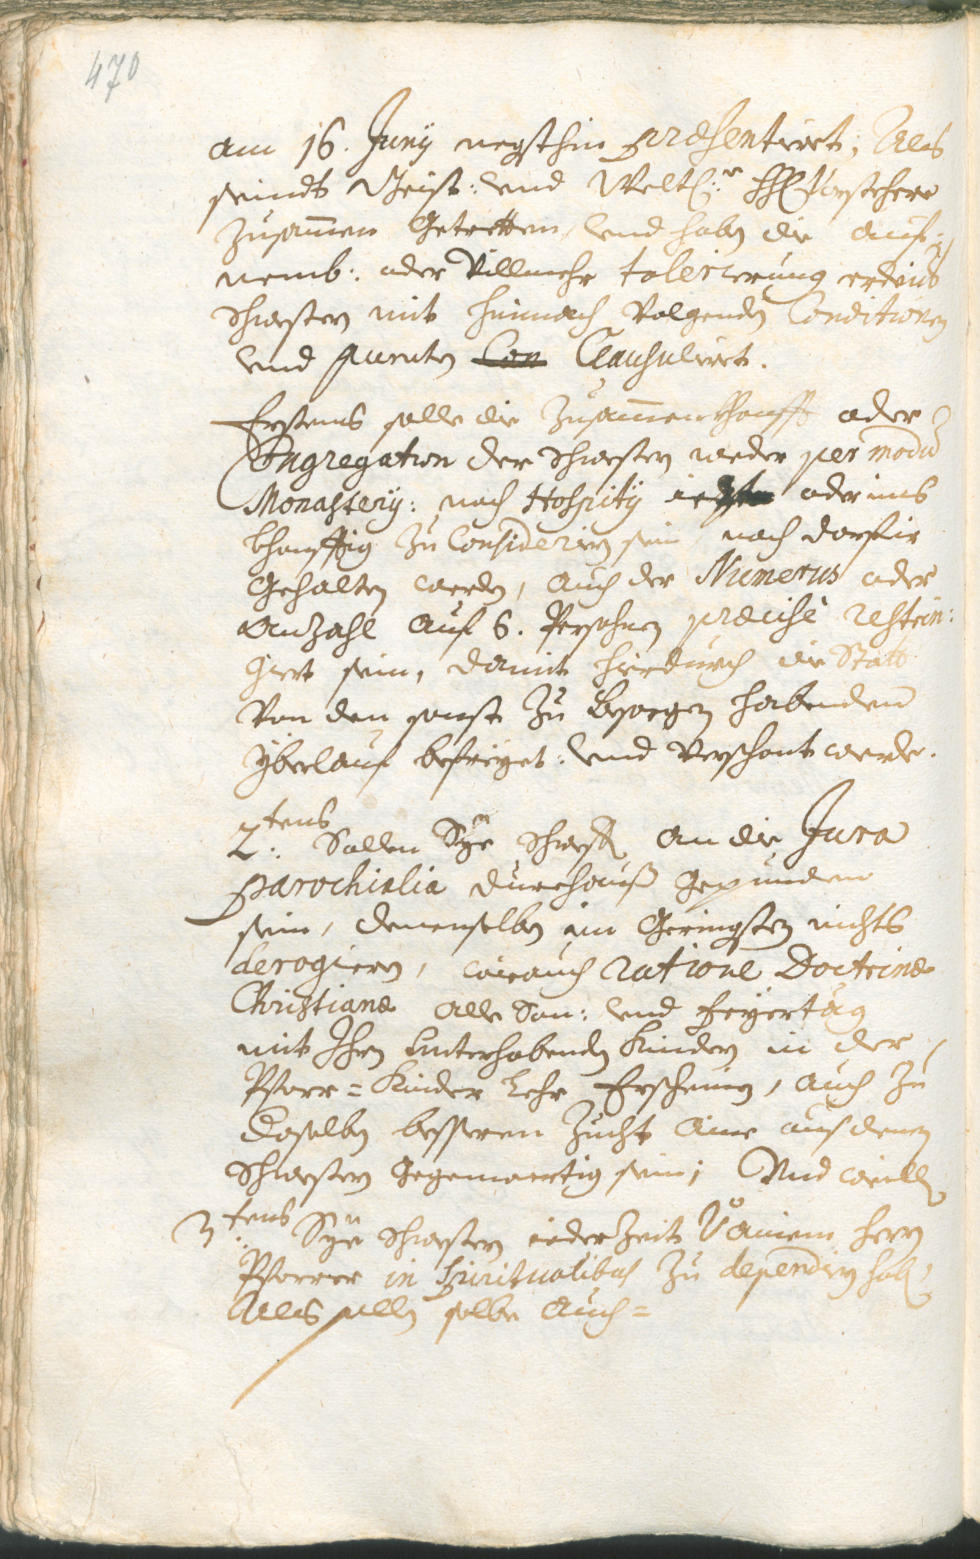 470
am 16. Junÿ negsthin præsentiert, Als
seindt Geist: vnd Weltl: HH: Vorsteher
zusammen Getretten, vnd haben die auf:
nemb: oder Villmehr tolerierung erdeüt
Schwestern mit hernach Volgenden Conditionen
vnd Puncten Con Clausuliert.
Erstens solle die Zusammenkhonfft oder
Congregation der Schwestern weder per modũ
Monasterÿ: noch Hospitÿ oder ins
khonfftig zu Considerieren sein, noch darfir
Gehalten werden, auch der Numerus oder
Anzahl auf 6. Persohnen præcise restrin:
giert sein, damit hierdurch die Statt
Von den sonst zu besorgen habenden
yberlauf befreyet: vnd Verschont werde.
2.tens Sollen Sÿe Schwestern an die Jura
Parochialia durchauß Gepunden
sein, denenselben im Geringsten nichts
derogieren, wie auch ratione Doctrinæ
Christianæ alle Son: vnd Feyertäg
mit Ihren vnterhabenden Kindern in der
Pfarr=Kinder Lehr Erscheinen, auch zu
daselben besseren Zucht aine aus denen
Schwestern Gegenwertig sein; Vnd weillen
3.tens Sÿe Schwestern ieder Zeit Von ainem herrn
Pfarrer in Spiritualibus zu dependiern haben,
Als sollen selbe auch=